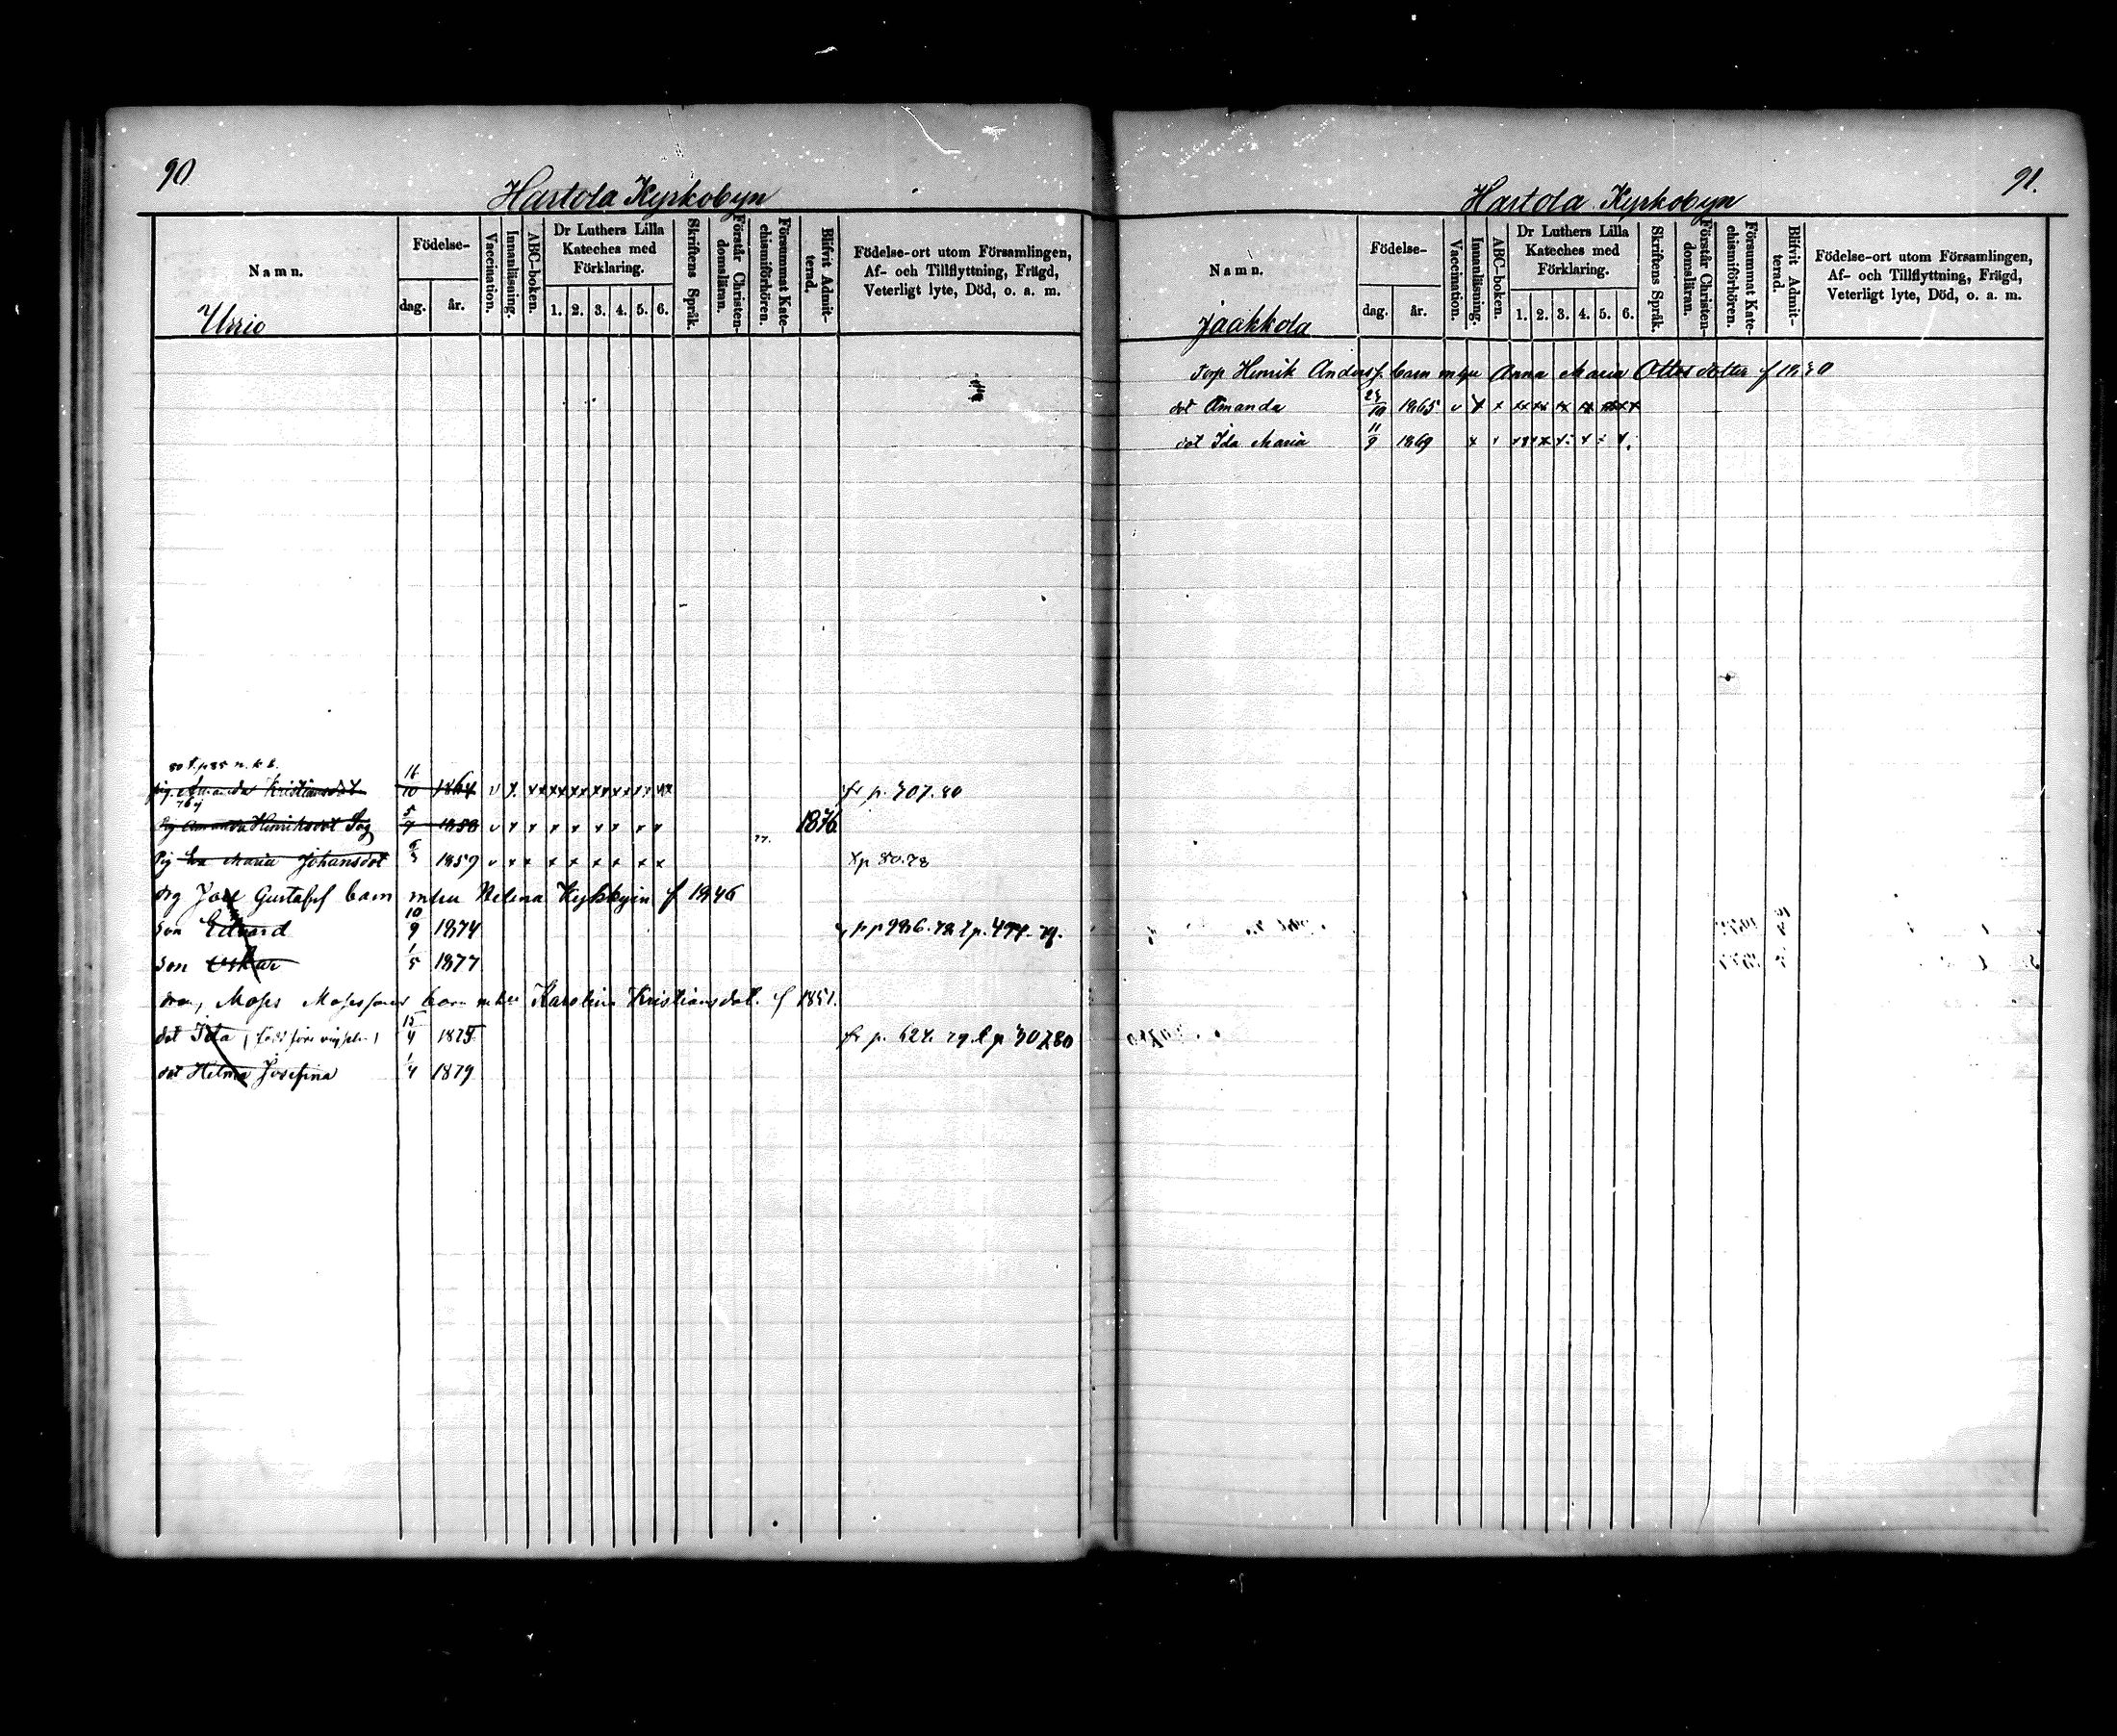 90
Hartola Kyrkobyn
Namn.
Födelse-
dag.
år.
Vaccination.
Innanläsning.
ABC-boken.
Dr Luthers Lilla
Kateches med
Förklaring.
1. 2. 3. 4. 5. 6.
Skriftens Språk.
Förstår Christen-
domsläran.
Försummat Kate-
chismiförhören.
Blifvit Admit-
terad.
Födelse-ort utom Församlingen,
Af- och Tillflyttning, Frägd,
Veterligt lyte, Död, o. a. m.
Urrio
pig Amanda Kristiansdot 16/10 1864 v x x x x x x x x fr p. 307. 80
Pig Amanda Henriksdot 5/9 1858 v x x x x x x x x 1876
Pig Eva Maria Johansdot 1859 v x x x x x x x x 80.78
drg Joel Gustafsf barn m hu Helena f 1846
son Edvard 10/9 1874
son Oskar 1/5 1877
Moses Mosesson barn m hu Karolina Kristiansdot. f 1851.
dot Ida 15/4 1875 fr p. 624. 79. l p 307.80
dot Helma Josefina 1/4 1879
91.
Hartola Kyrkobyn
Namn.
Födelse-
dag.
år.
Vaccination.
Innanläsning.
ABC-boken.
Dr Luthers Lilla
Kateches med
Förklaring.
1. 2. 3. 4. 5. 6.
Skriftens Språk.
Förstår Christen-
domsläran.
Försummat Kate-
chismiförhören.
Blifvit Admit-
terad.
Födelse-ort utom Församlingen,
Af- och Tillflyttning, Frägd,
Veterligt lyte, Död, o. a. m.
Jaakkola
Torp Henrik Andersf. barn m hu Anna Maria Ottosdotter f 1830
dot Amanda 1865 v x x x x x x x x
dot Ida Maria 11/9 1869 x x x x x x x